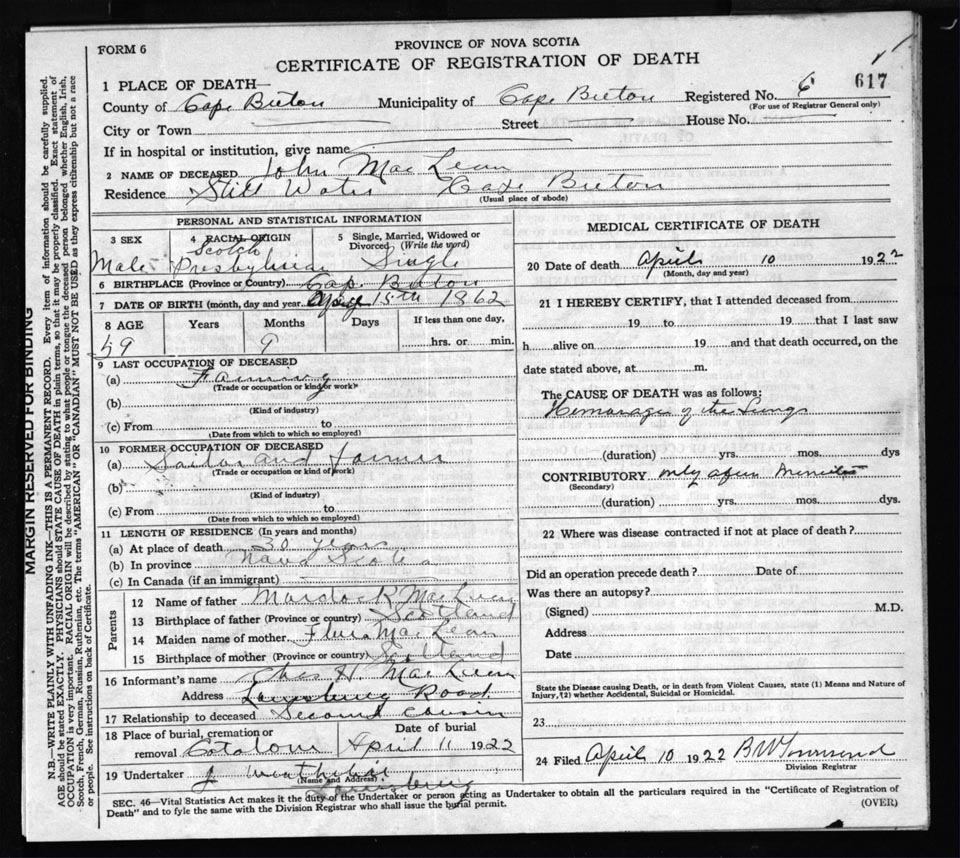 FORM 6
PROVINCE OF NOVA SCOTIA
CERTIFICATE OF REGISTRATION OF DEATH
617
1 PLACE OF DEATH—
County of Cape Breton Municipality of Cape Breton Registered No. 6
(For use of Registrar General only)
City or Town Street House No.
If in hospital or institution, give name
2 NAME OF DECEASED John MacLean
Residence Still Water Cape Breton
(Usual place of abode)
PERSONAL AND STATISTICAL INFORMATION
3 SEX 4 RACIAL ORIGIN 5 Single, Married, Widowed or Divorced, (Write the word)
Male Scotch Presbyterian Single
6 BIRTHPLACE (Province or Country) Cape Breton
7 DATE OF BIRTH (month, day and year) 15th 1862
8 AGE Years Months Days If less than one day,
59 9 hrs. or min.
9 LAST OCCUPATION OF DECEASED
(a) Farming
(Trade or occupation or kind of work)
(b)
(Kind of industry)
(c) From to
(Date from which to which so employed)
10 FORMER OCCUPATION OF DECEASED
(a) Sailor and Farmer
(Trade or occupation or kind of work)
(b)
(Kind of industry)
(c) From to
(Date from which to which so employed)
11 LENGTH OF RESIDENCE (In years and months)
(a) At place of death 30 years
(b) In province Nova Scotia
(c) In Canada (if an immigrant)
Parents
12 Name of father Murdock MacLean
13 Birthplace of father (Province or country) Scotland
14 Maiden name of mother Flora MacLean
15 Birthplace of mother (Province or country) Scotland
16 Informant's name H. MacLean
Address Louisburg Road
17 Relationship to deceased Second Cousin
18 Place of burial, cremation or removal Catalone Date of burial April 11 1922
19 Undertaker J
(Name and Address)
Louisburg
MEDICAL CERTIFICATE OF DEATH
20 Date of death April 10 1922
(Month, day and year)
21 I HEREBY CERTIFY, that I attended deceased from
19 to 19 that I last saw
h alive on 19 and that death occurred, on the
date stated above, at m.
The CAUSE OF DEATH was as follows:
Hemorage of the Lungs
(duration) yrs. mos. dys
CONTRIBUTORY only a few Minutes
(Secondary)
(duration) yrs. mos. dys.
22 Where was disease contracted if not at place of death?
Did an operation precede death? Date of
Was there an autopsy?
(Signed) M.D.
Address
Date
State the Disease causing Death, or in death from Violent Causes, state (1) Means and Nature of
Injury, (2) whether Accidental, Suicidal or Homicidal.
23
24 Filed April 10 1922 B W Townsend
Division Registrar
SEC. 46—Vital Statistics Act makes it the duty of the Undertaker or person acting as Undertaker to obtain all the particulars required in the "Certificate of Registration of
Death" and to fyle the same with the Division Registrar who shall issue the burial permit.
(OVER)
MARGIN RESERVED FOR BINDING
N.B.—WRITE PLAINLY WITH UNFADING INK—THIS IS A PERMANENT RECORD. Every item of information should be carefully supplied.
AGE should be stated EXACTLY. PHYSICIANS should STATE CAUSE OF DEATH in plain terms, so that it may be properly classified. Exact statement of
OCCUPATION is very important. RACIAL ORIGIN will be described by stating to what people or tongue the deceased person belonged whether English, Irish,
Scotch, French, German, Russian, Ruthenian, etc. The terms "AMERICAN" OR "CANADIAN" MUST NOT BE USED as they express citizenship but not a race
or people. See instructions on back of Certificate.